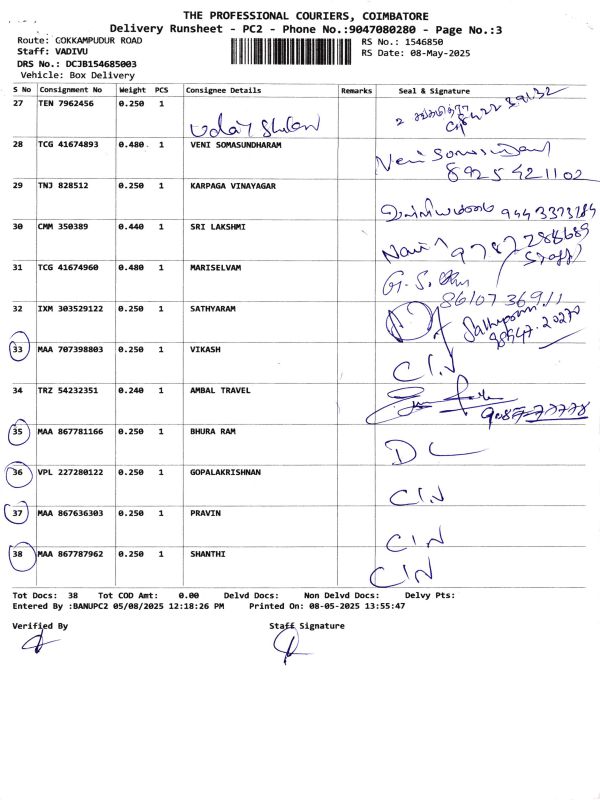 THE PROFESSIONAL COURIERS, COIMBATORE
Delivery Runsheet - PC2 - Phone No.:9047080280 - Page No.:3
Route: GOKKAMPUDUR ROAD
RS No.: 1546850
Staff: VADIVU
RS Date: 08-May-2025
DRS No.: DCJB154685003
Vehicle: Box Delivery
S No Consignment No Weight PCS Consignee Details Remarks Seal & Signature
27 TEN 7962456 0.250 1
28 TCG 41674893 0.480 1 VENI SOMASUNDHARAM Veni Somasundaram
8925421102
29 TNJ 828512 0.250 1 KARPAGA VINAYAGAR
30 CMM 350389 0.440 1 SRI LAKSHMI 9787288689
(Staff)
31 TCG 41674960 0.480 1 MARISELVAM
8610736911
32 IXM 303529122 0.250 1 SATHYARAM
98947.20270
33 MAA 707398803 0.250 1 VIKASH CIN
34 TRZ 54232351 0.240 1 AMBAL TRAVEL
35 MAA 867781166 0.250 1 BHURA RAM DL
36 VPL 227280122 0.250 1 GOPALAKRISHNAN CIN
37 MAA 867636303 0.250 1 PRAVIN CIN
38 MAA 867787962 0.250 1 SHANTHI CIN
Tot Docs: 38 Tot COD Amt: 0.00 Delvd Docs: Non Delvd Docs: Delvy Pts:
Entered By :BANUPC2 05/08/2025 12:18:26 PM Printed On: 08-05-2025 13:55:47
Verified By Staff Signature